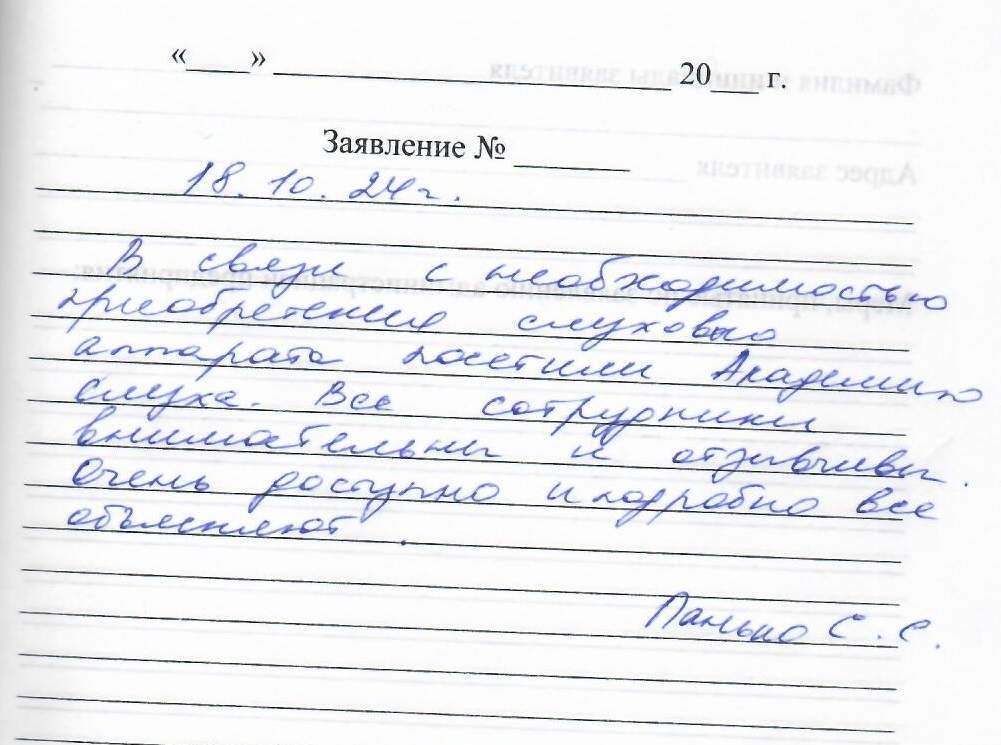 «____» __________________________ 20___ г.
Заявление № ________
18. 10. 24г.
В связи с необходимостью
приобретения слухового
аппарата посетили Академию
слуха. Все сотрудники
внимательны и отзывчивы.
Очень доступно и подробно все
объясняют.
Панько С. С.
Фамилия и инициалы заявителя
Адрес заявителя